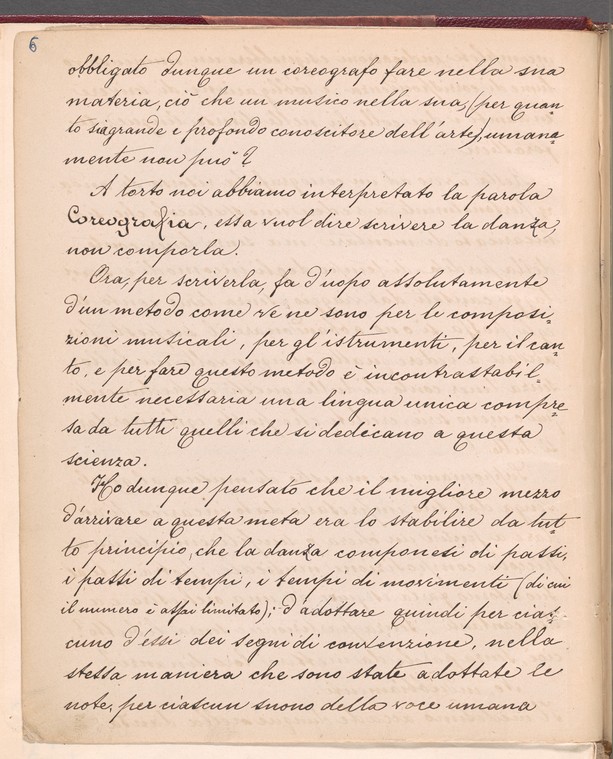 6
obbligato dunque un coreografo fare nella sua
materia, ciò che un musico nella sua, (per quan
to sia grande e profondo conoscitore dell'arte), umana=
mente non può?
A torto noi abbiamo interpretato la parola
Coreografia, essa vuol dire scrivere la danza,
non comporla.
Ora, per scriverla, fa d'uopo assolutamente
d'un metodo come ve ne sono per le composi=
zioni musicali, per gl'istrumenti, per il can=
to, e per fare questo metodo è incontrastabil=
mente necessaria una lingua unica compre=
sa da tutti quelli che si dedicano a questa
scienza.
Ho dunque pensato che il migliore mezzo
d'arrivare a questa meta era lo stabilire da tut=
to principio, che la danza componesi di passi,
i passi di tempi, i tempi di movimenti (di cui
il numero è assai limitato); d'adottare quindi per cias=
cuno d'essi dei segni di convenzione, nella
stessa maniera che sono state adottate le
note, per ciascun suono della voce umana